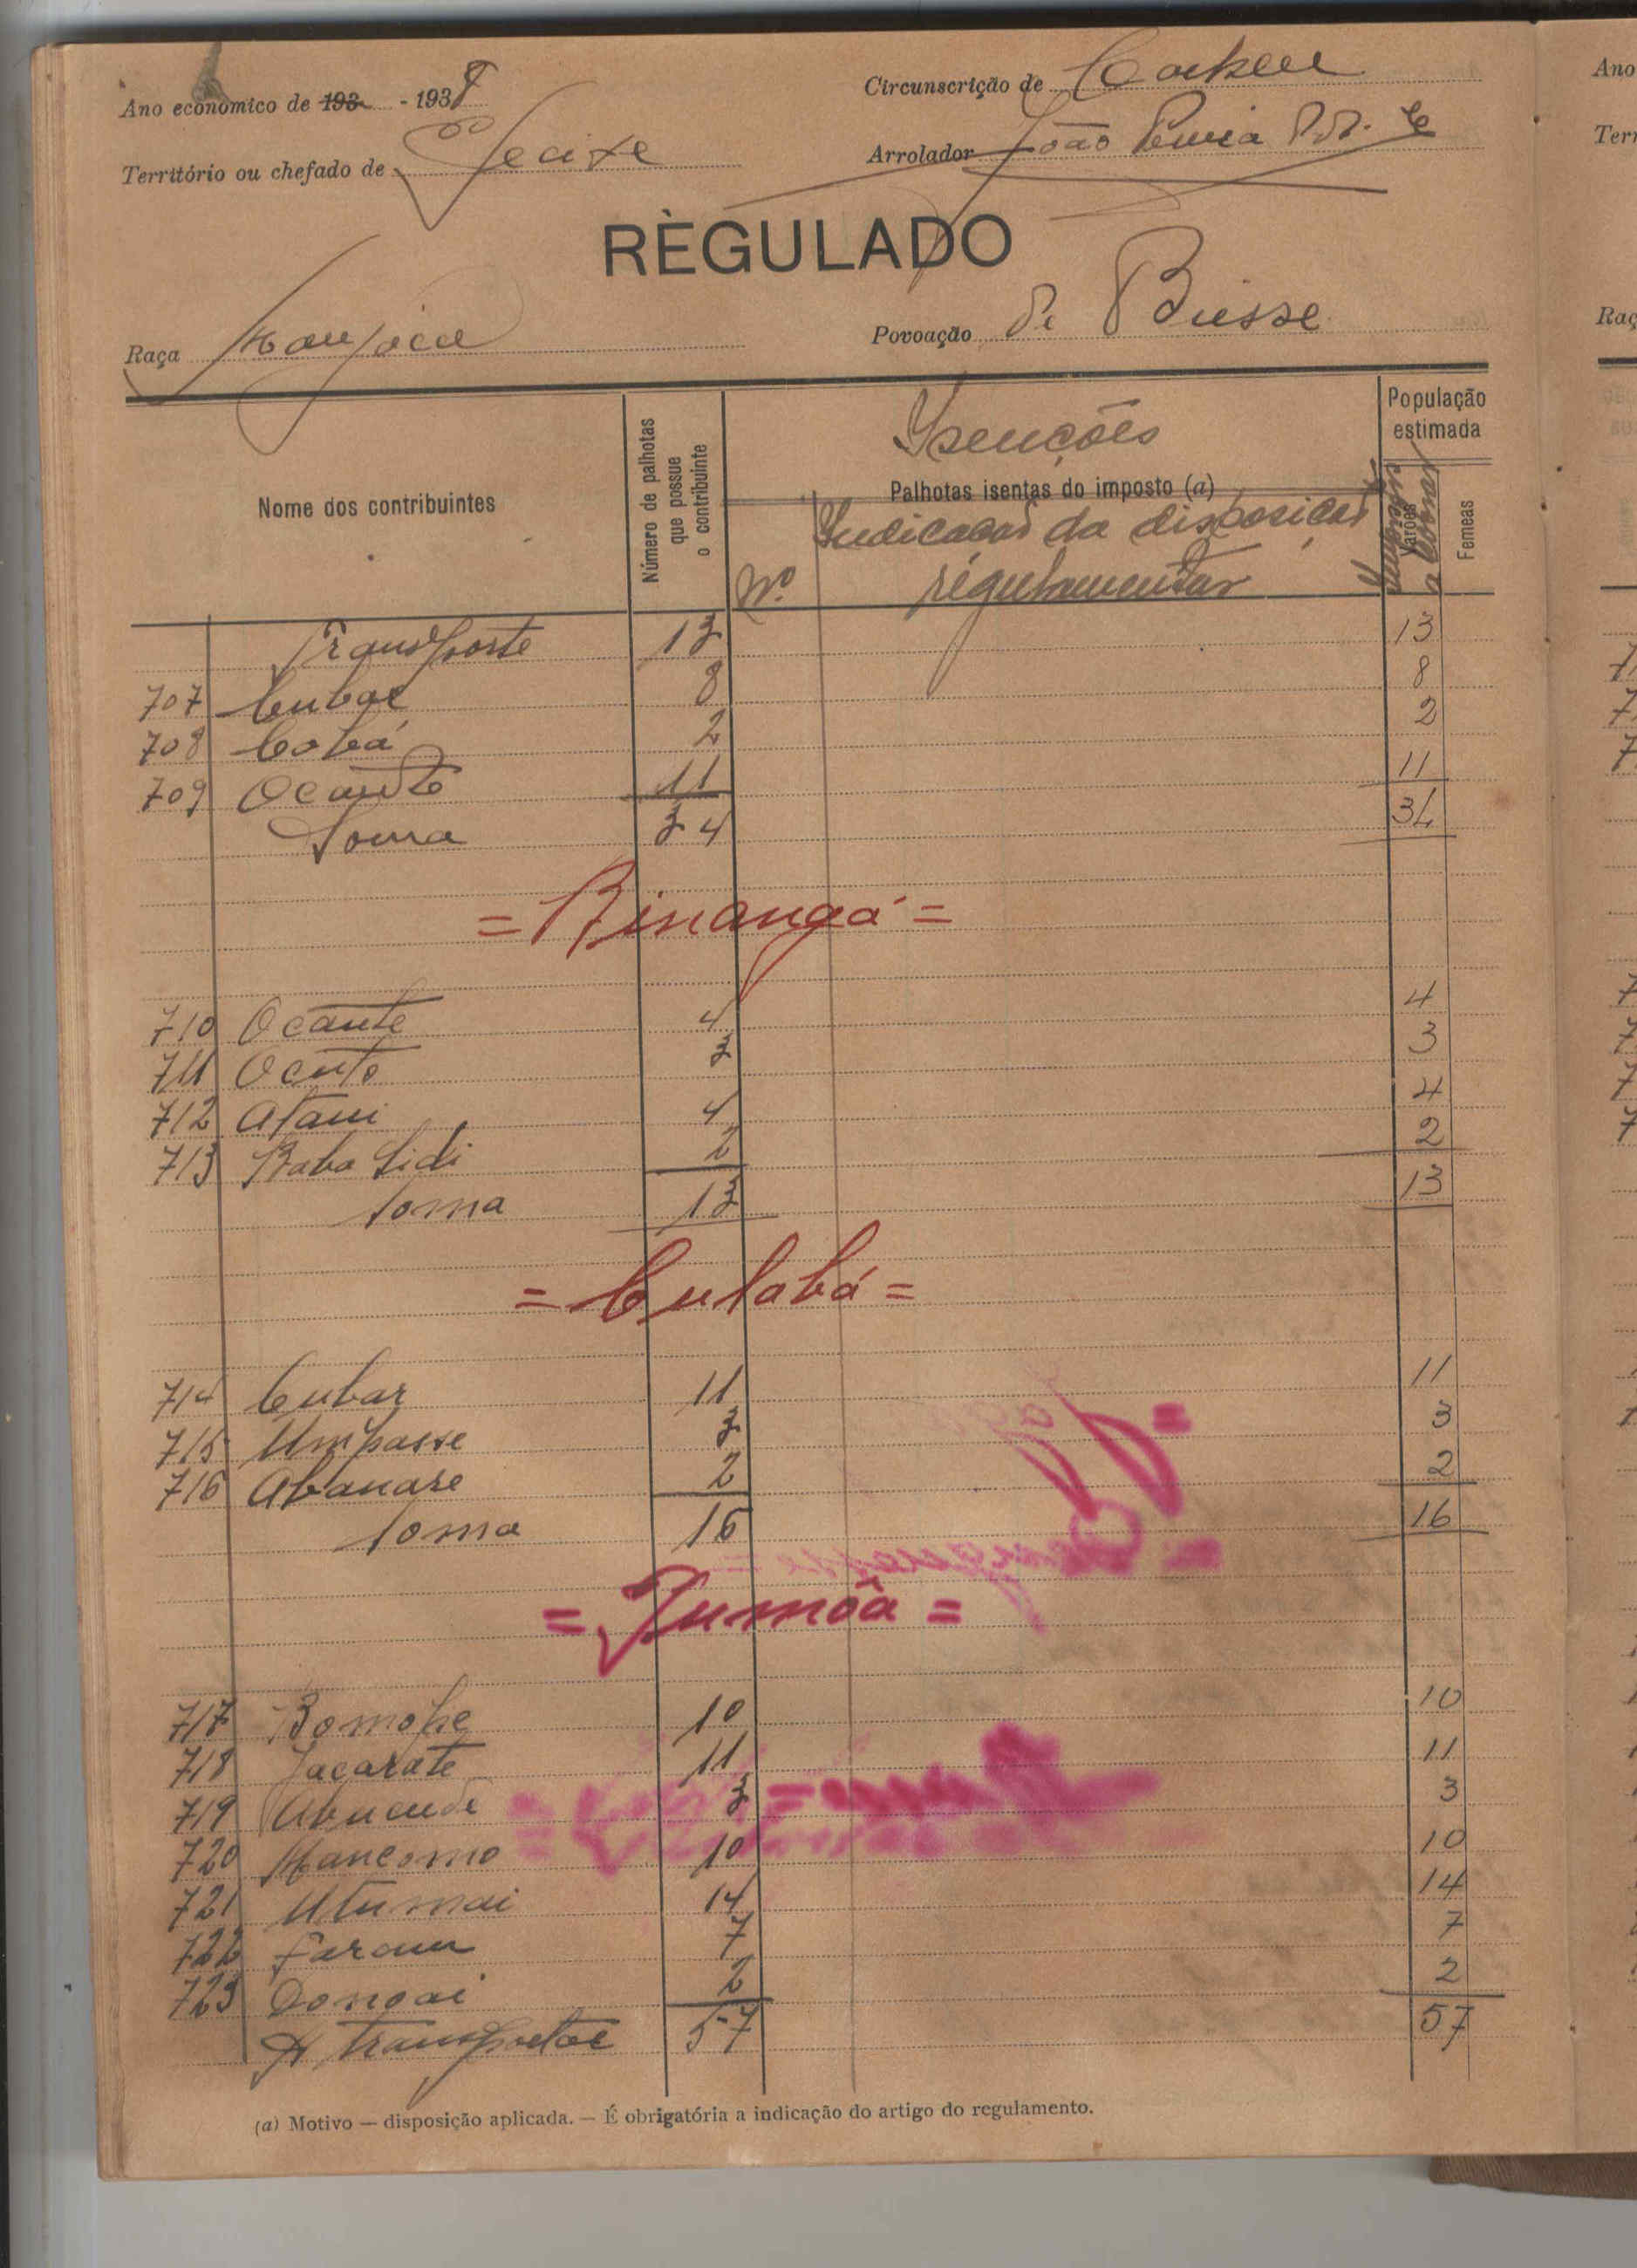 Ano económico de 193 - 1938
Circunscrição de
Território ou chefado de
Arrolador João
REGULADO
Raça
Povoação de
Nome dos contribuintes
Número de palhotas que possue o contribuinte
Isenções
Palhotas isentas do imposto (a)
Nº
Indicação da disposição
regulamentar
População estimada
Varões
Femeas
Transporte 13 13
707 Cubar 8 8
708 Cobá 2 2
709 Ocanto 11 11
Soma 34 34
= Binangá =
710 Ocante 4 4
711 3 3
712 4 4
713 Baba Sidi 2 2
Soma 13 13
= Culabá =
714 Cubar 11 11
715 Umpasse 3 3
716 Abanase 2 2
Soma 16 16
= Jumôa =
717 Bomope 10 10
718 Jacarate 11 11
719 3 3
720 Mancomo 10 10
721 Utumai 14 14
722 7 7
723 Donoai 2 2
A transportar 57 57
(a) Motivo — disposição aplicada. — É obrigatória a indicação do artigo do regulamento.